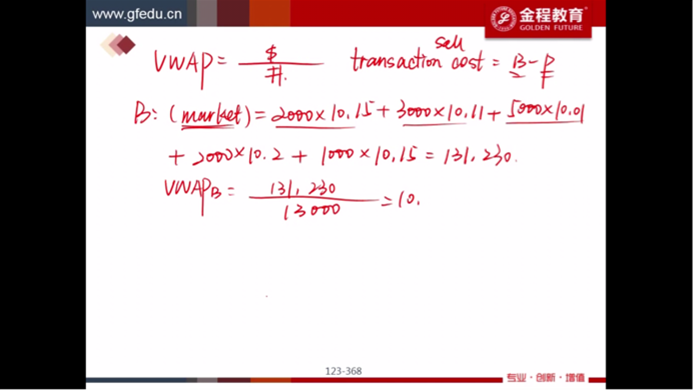 www.gfedu.cn
金程教育
GOLDEN FUTURE
VWAP = $ / 升.
sell
transaction cost = B - P
B: (market) = 2000×10.15 + 3000×10.11 + 5000×10.01
+ 2000×10.2 + 1000×10.15 = 131,230.
VWAP_B = 131,230 / 13000 = 10.
123-368
专业·创新·增值